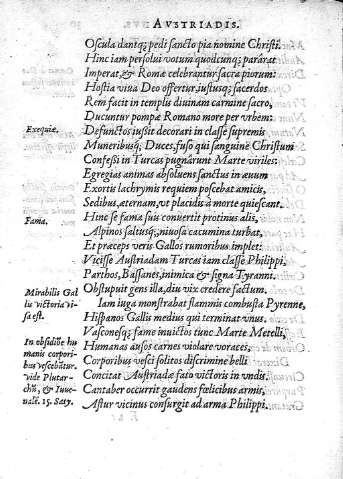 AVSTRIADIS.
Oscula dantq; pedi sancto pia nomine Christi.
Hinc iam persolui votum quodcunq; parârat
Imperat, & Romæ celebrantur sacra piorum:
Hostia viua Deo offertur, iustusq; sacerdos
Rem facit in templis diuinam carmine sacro,
Ducuntur pompæ Romano more per vrbem:
Exequiæ.
Defunctos iussit decorari in classe supremis
Muneribusq; Duces, fuso qui sanguine Christum
Confessi in Turcas pugnârunt Marte viriles:
Egregias animas absoluens sanctus in æuum
Exortis lachrymis requiem poscebat amicis,
Sedibus, æternam, vt placidâ à morte quiescant.
Fama.
Hinc se fama suis conuertit protinus alis,
Alpinos saltusq; niuosa cacumina turbat,
Et præceps veris Gallos rumoribus implet:
Vicisse Austriadam Turcas iam classe Philippi,
Parthos, Bassanes, inimica & signa Tyranni.
Mirabilis Gal
lis victoria vi
sa est.
Obstupuit gens illa, diu vix credere factum.
Iam iuga monstrabat flammis combusta Pyrenne,
Hispanos Gallis medius qui terminat vnus.
Vasconesq; fame inuictos tunc Marte Metelli,
In obsidiõe hu
manis corpori
bus vescebãtur.
vide Plutar-
chũ, & Iuue-
nalẽ. 15. Saty.
Humanas ausos carnes violare voraces,
Corporibus vesci solitos discrimine belli
Concitat Austriadæ fato victoris in vndis.
Cantaber occurrit gaudens fœlicibus armis,
Astur vicinus consurgit ad arma Philippi.